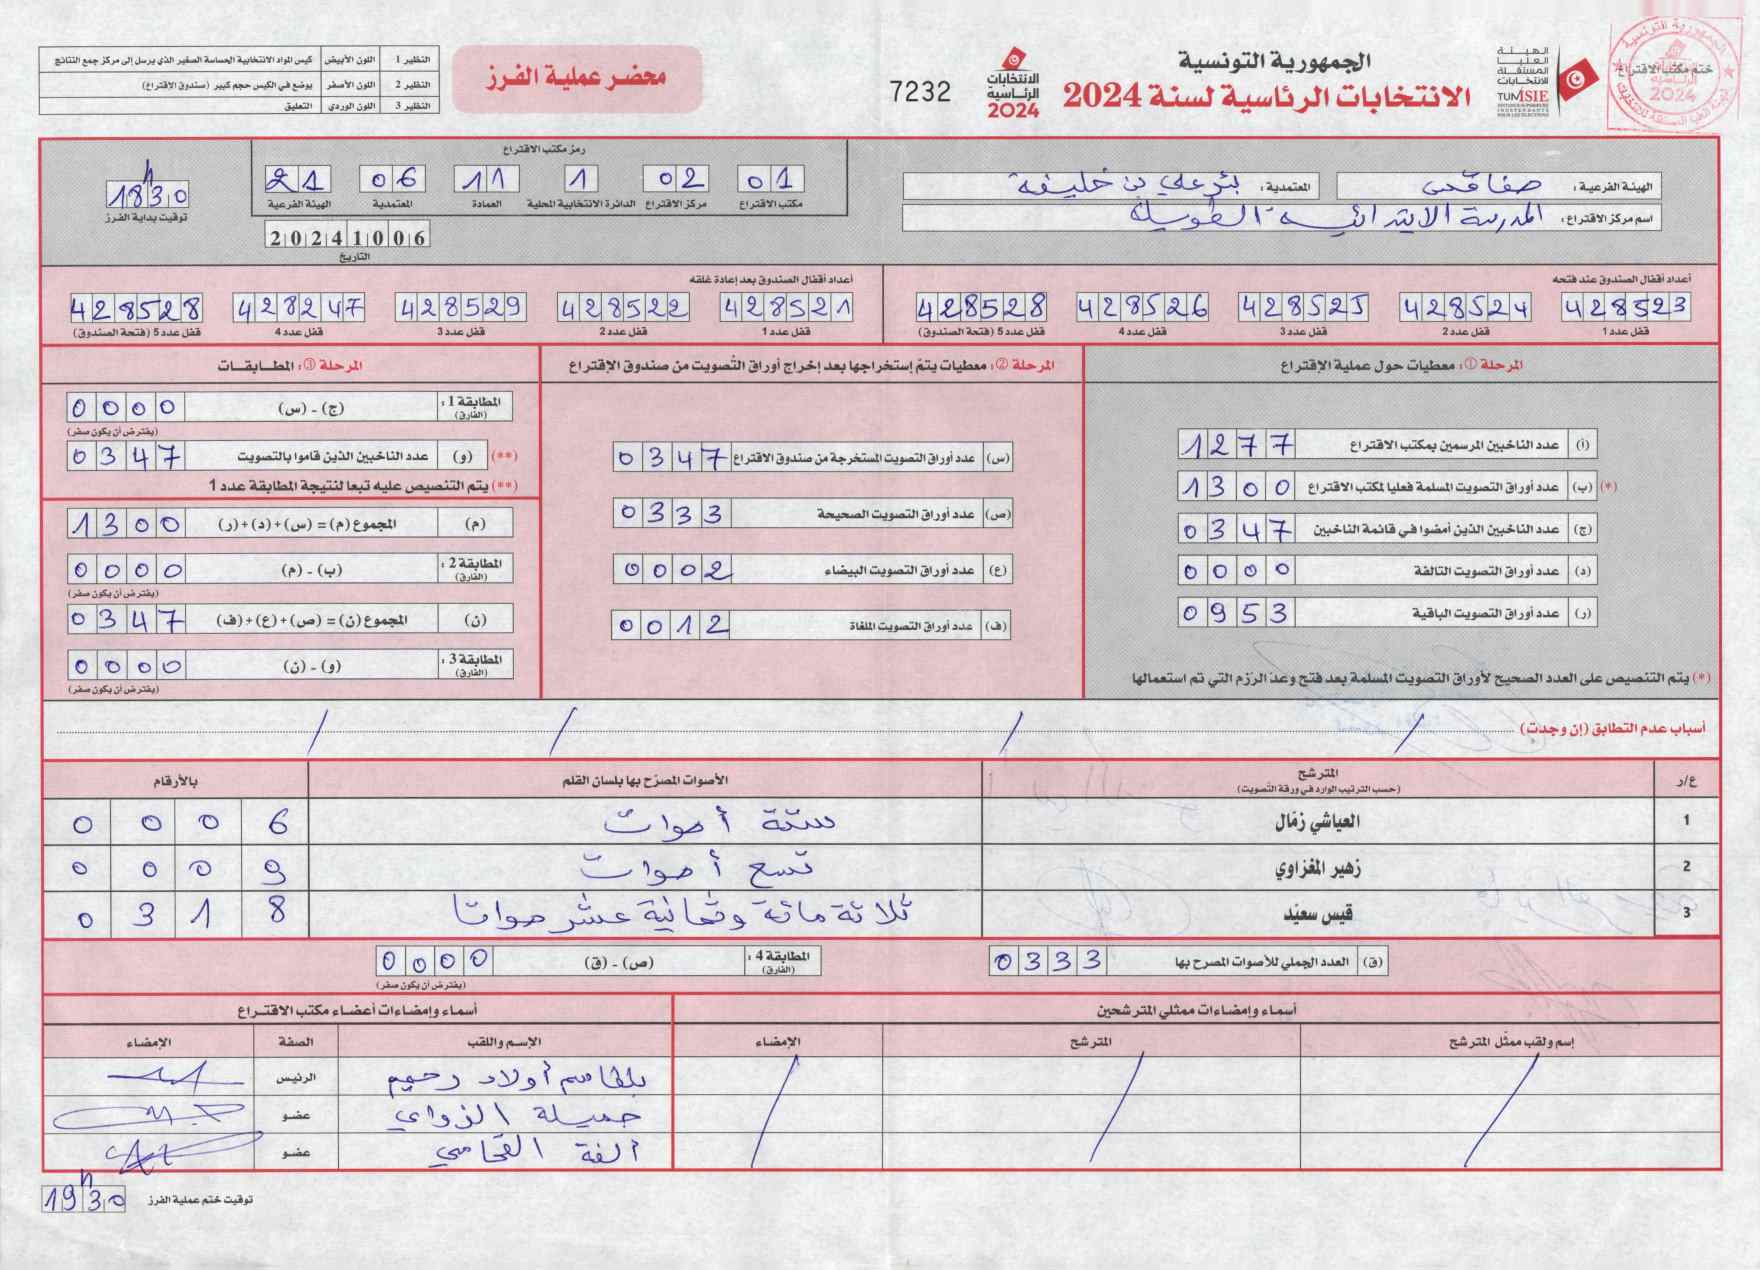 الجمهورية التونسية
الانتخابات الرئاسية لسنة 2024
الهيئة العليا المستقلة للانتخابات
TUNISIE
ختم مكتب الاقتراع
الانتخابات الرئاسية 2024
7232
محضر عملية الفرز
النظير 1 اللون الأبيض كيس المواد الانتخابية الحساسة الصغير الذي يرسل إلى مركز جمع النتائج
النظير 2 اللون الأصفر يوضع في الكيس حجم كبير (صندوق الاقتراع)
النظير 3 اللون الوردي التعليق
الهيئة الفرعية : صفاقس
المعتمدية : بئر علي بن خليفة
اسم مركز الاقتراع : المدرسة الابتدائية
رمز مكتب الاقتراع
01 02 1 11 06 21
مكتب الاقتراع مركز الاقتراع الدائرة الانتخابية المحلية العمادة المعتمدية الهيئة الفرعية
20241006
التاريخ
18h30
توقيت بداية الفرز
أعداد أقفال الصندوق عند فتحه
428523 428524 428525 428526 428528
قفل عدد 1 قفل عدد 2 قفل عدد 3 قفل عدد 4 قفل عدد 5 (فتحة الصندوق)
أعداد أقفال الصندوق بعد إعادة غلقه
428521 428522 428529 428247 428528
قفل عدد 1 قفل عدد 2 قفل عدد 3 قفل عدد 4 قفل عدد 5 (فتحة الصندوق)
المرحلة ①: معطيات حول عملية الإقتراع
(أ) عدد الناخبين المرسمين بمكتب الاقتراع 1277
(*) (ب) عدد أوراق التصويت المسلمة فعليا لمكتب الاقتراع 1300
(ج) عدد الناخبين الذين أمضوا في قائمة الناخبين 0347
(د) عدد أوراق التصويت التالفة 0000
(ر) عدد أوراق التصويت الباقية 0953
(*) يتم التنصيص على العدد الصحيح لأوراق التصويت المسلمة بعد فتح وعدّ الرزم التي تم استعمالها
المرحلة ②: معطيات يتمّ إستخراجها بعد إخراج أوراق التّصويت من صندوق الإقتراع
(س) عدد أوراق التصويت المستخرجة من صندوق الاقتراع 0347
(ص) عدد أوراق التصويت الصحيحة 0333
(ع) عدد أوراق التصويت البيضاء 0002
(ف) عدد أوراق التصويت الملغاة 0012
المرحلة ③: المطابقات
المطابقة 1 : (الفارق) (ج) - (س) 0000
(يفترض أن يكون صفر)
(**) (و) عدد الناخبين الذين قاموا بالتصويت 0347
(**) يتم التنصيص عليه تبعا لنتيجة المطابقة عدد 1
(م) المجموع (م) = (س)+(د)+(ر) 1300
المطابقة 2 : (الفارق) (ب) - (م) 0000
(يفترض أن يكون صفر)
(ن) المجموع (ن) = (ص)+(ع)+(ف) 0347
المطابقة 3 : (الفارق) (و) - (ن) 0000
(يفترض أن يكون صفر)
أسباب عدم التطابق (إن وجدت) / / / /
ع/ر المترشح (حسب الترتيب الوارد في ورقة التّصويت) الأصوات المصرّح بها بلسان القلم بالأرقام
1 العياشي زمّال ستة أصوات 0006
2 زهير المغزاوي تسع أصوات 0009
3 قيس سعيّد ثلاثة مائة وثمانية عشر صواتا 0318
(ق) العدد الجملي للأصوات المصرح بها 0333
المطابقة 4 : (الفارق) (ص) - (ق) 0000
(يفترض أن يكون صفر)
أسماء وإمضاءات ممثلي المترشحين
إسم ولقب ممثّل المترشح المترشح الإمضاء
/ / /
أسماء وإمضاءات أعضاء مكتب الاقتراع
الإسم واللقب الصفة الإمضاء
بلقاسم أولاد رحيم الرئيس
جميلة الزواي عضو
ألفة عضو
توقيت ختم عملية الفرز 19h30